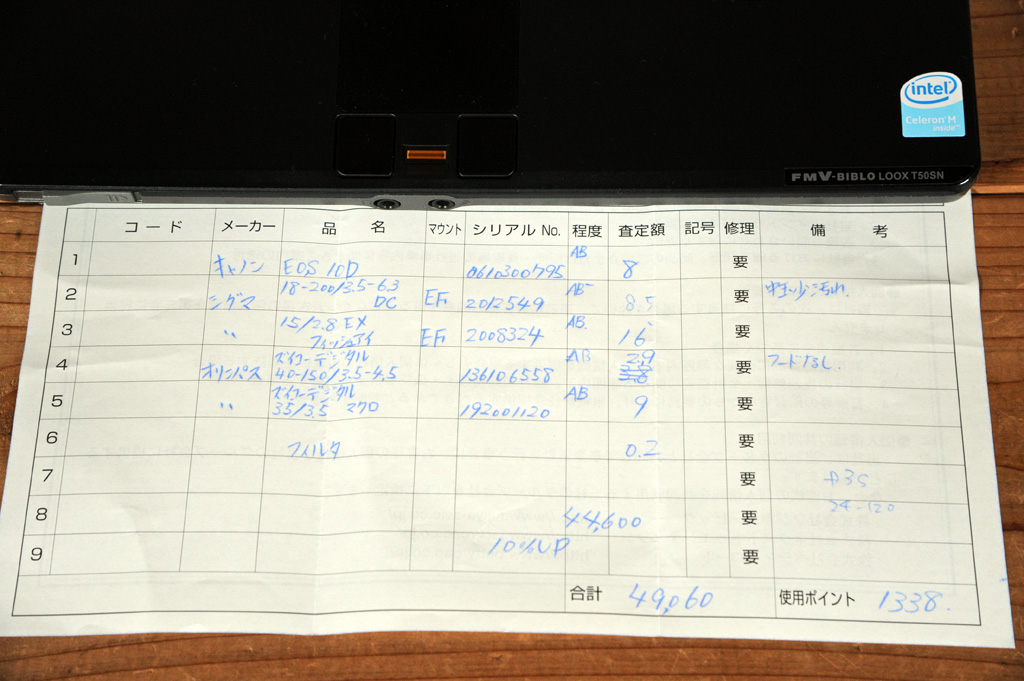 intel
Celeron M
inside™
FMV-BIBLO LOOX T50SN
コード メーカー 品名 マウント シリアル No. 程度 査定額 記号 修理 備考
1 キャノン EOS 10D 0610300795 AB 8 要
2 シグマ 18-200/3.5-6.3 DC EF 2012549 AB⁻ 8.5 要 汚れ.
3 〃 15/2.8 EX フィッシュアイ EF 2008324 AB. 16 要
4 オリンパス ズイコーデジタル 40-150/3.5-4.5 136106558 AB 2.9 要 フードなし.
5 〃 ズイコーデジタル 35/3.5 マクロ 192001120 AB 9 要
6 フィルタ 0.2 要
7 要 D3S
8 44,600 要 24-120
9 10%UP 要
合計 49,060 使用ポイント 1338.